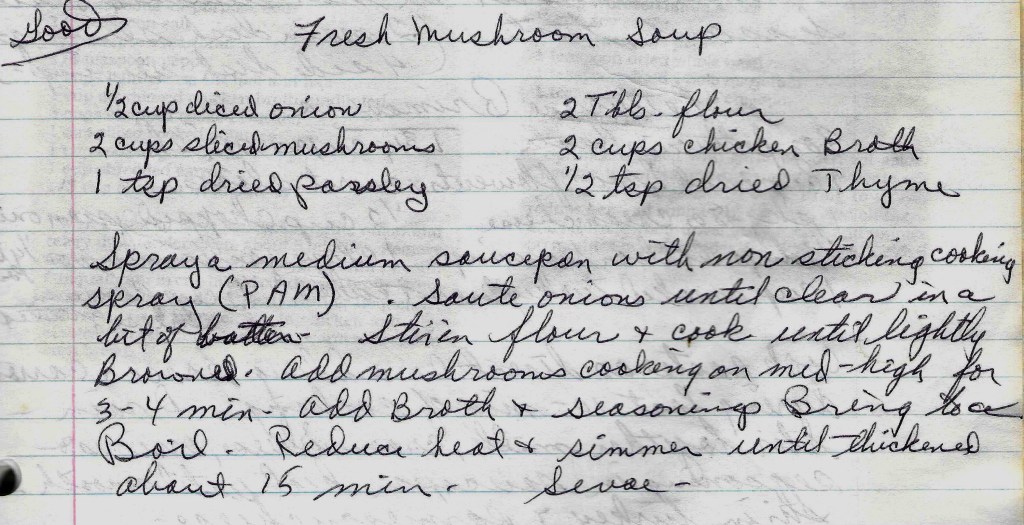 Good
Fresh Mushroom Soup
1/2 cup diced onion
2 cups sliced mushrooms
1 tsp dried parsley
2 Tbls. flour
2 cups chicken Broth
1/2 tsp dried Thyme
Spray a medium saucepan with non sticking cooking
spray (PAM) . Saute onions until clear in a
bit of butter - Stir in flour & cook until lightly
Browned. Add mushrooms cooking on med-high for
3-4 min - Add Broth & seasonings Bring to a
Boil. Reduce heat & simmer until thickened
about 15 min. Serve -